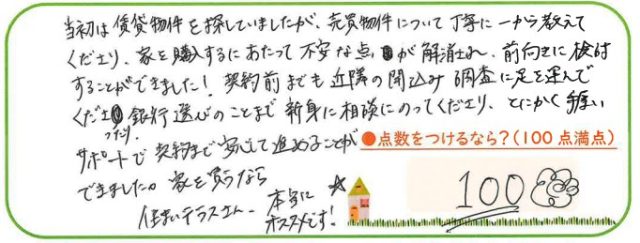 当初は賃貸物件を探していましたが、売買物件について丁寧に一から教えて
くださり、家を購入するにあたって不安な点が解消され、前向きに検討
することができました！契約前までも近隣の聞込み調査に足を運んで
くださったり、銀行選びのことまで新身に相談にのってくださり、とにかく手厚い
サポートで契約まで安心して進めることが
できました。家を買うなら
住まいテラスさん、本当に
オススメです！
●点数をつけるなら？(100点満点)
100